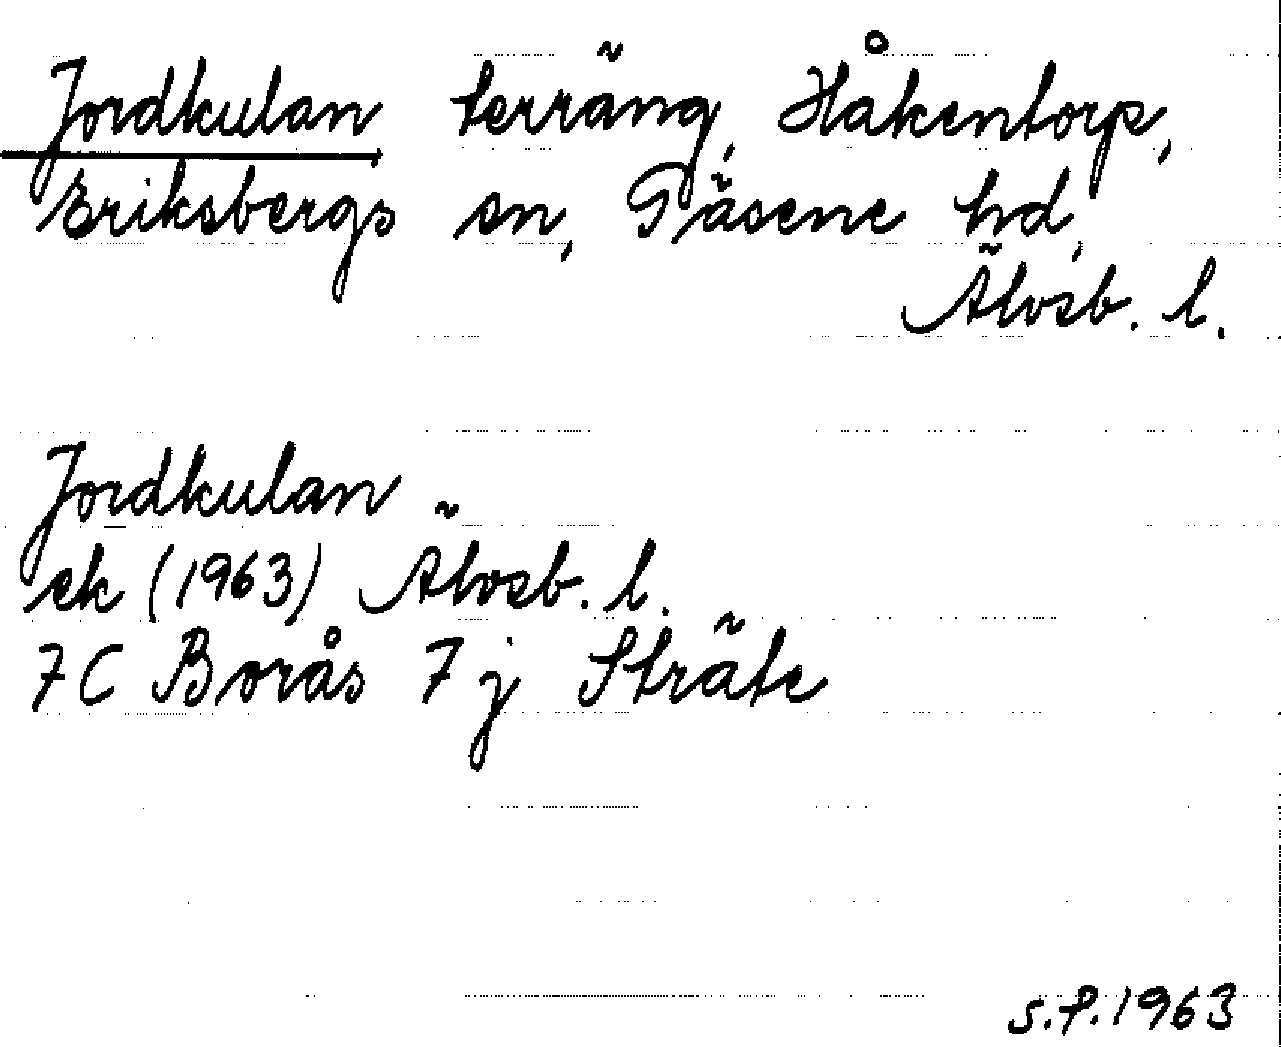 Jordkulan terräng, Håkentorp,
Eriksbergs sn, Gäsene hd,
Älvsb. l.
Jordkulan
ek (1963) Älvsb. l.
7C Borås 7j Sträte
S.P. 1963